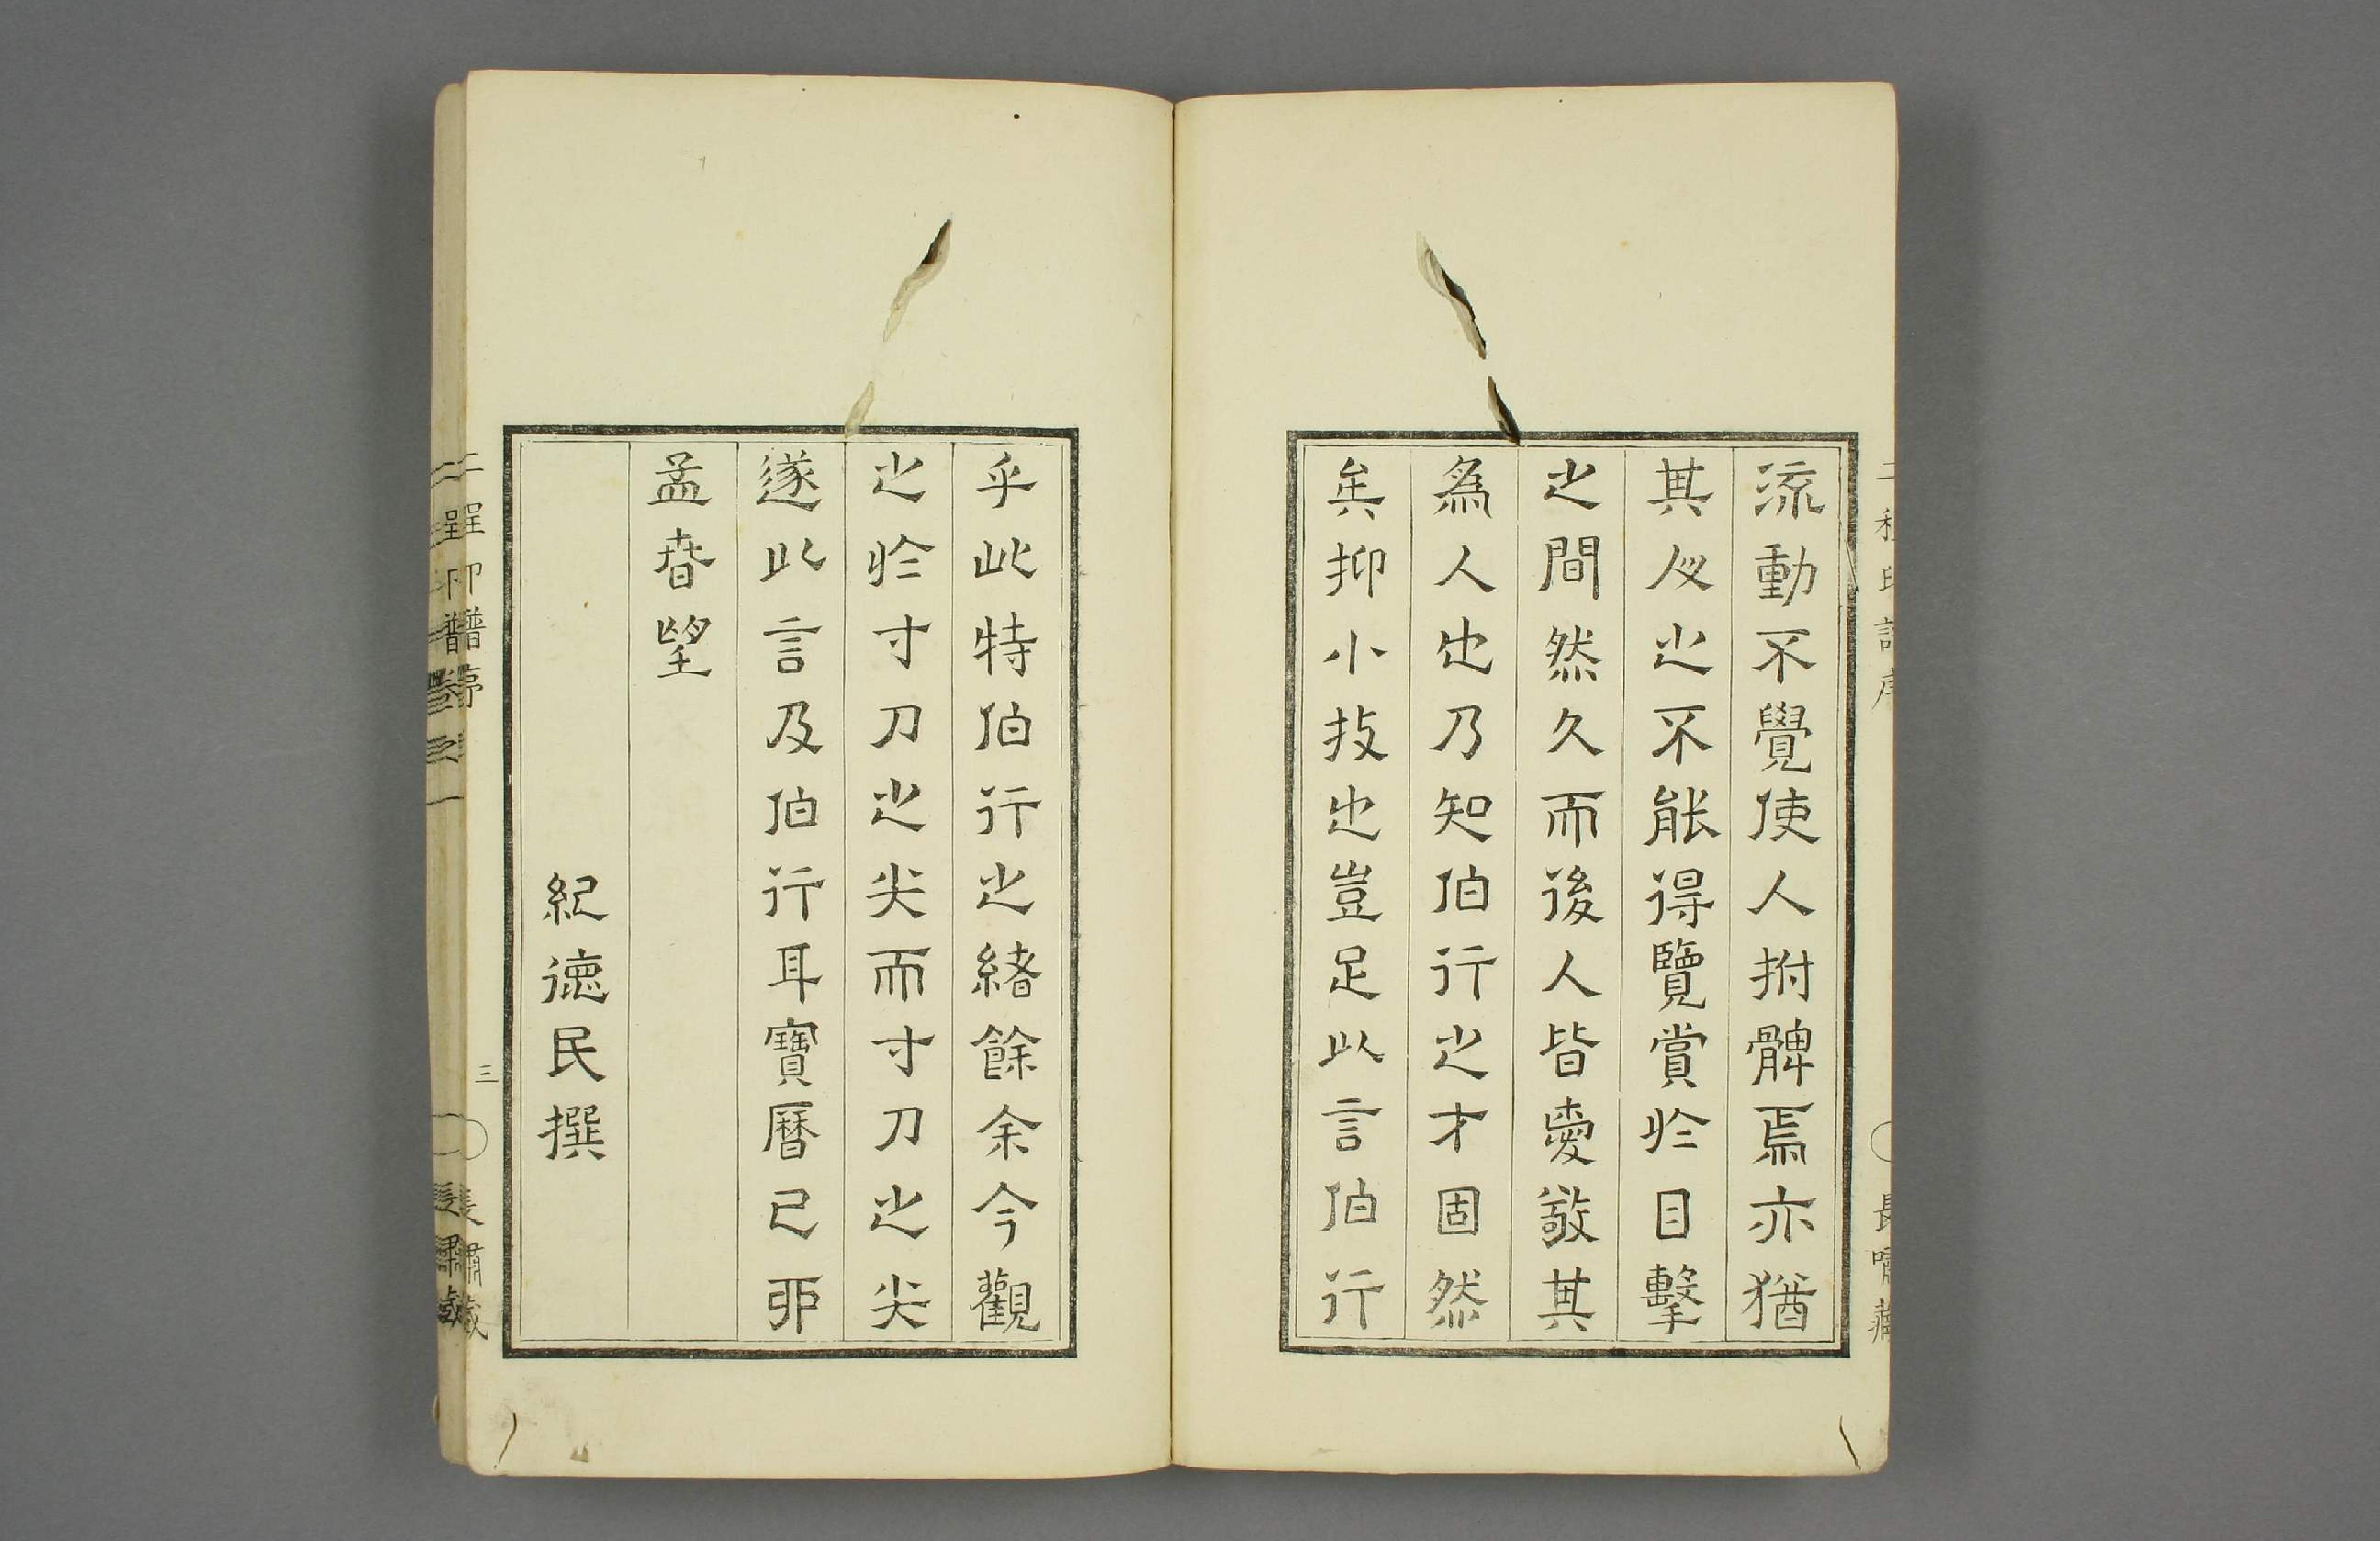 二程印譜序
長嘯藏
流動不覺使人拊髀焉亦猶
其之不能得覽賞於目擊
之間然久而後人皆愛敬其
為人也乃知伯行之才固然
矣抑小技也豈足以言伯行
乎此特伯行之緒餘余今觀
之於寸刀之尖而寸刀之尖
遂以言及伯行耳寶曆己卯
孟春望
紀德民撰
二程印譜序
三
長嘯藏